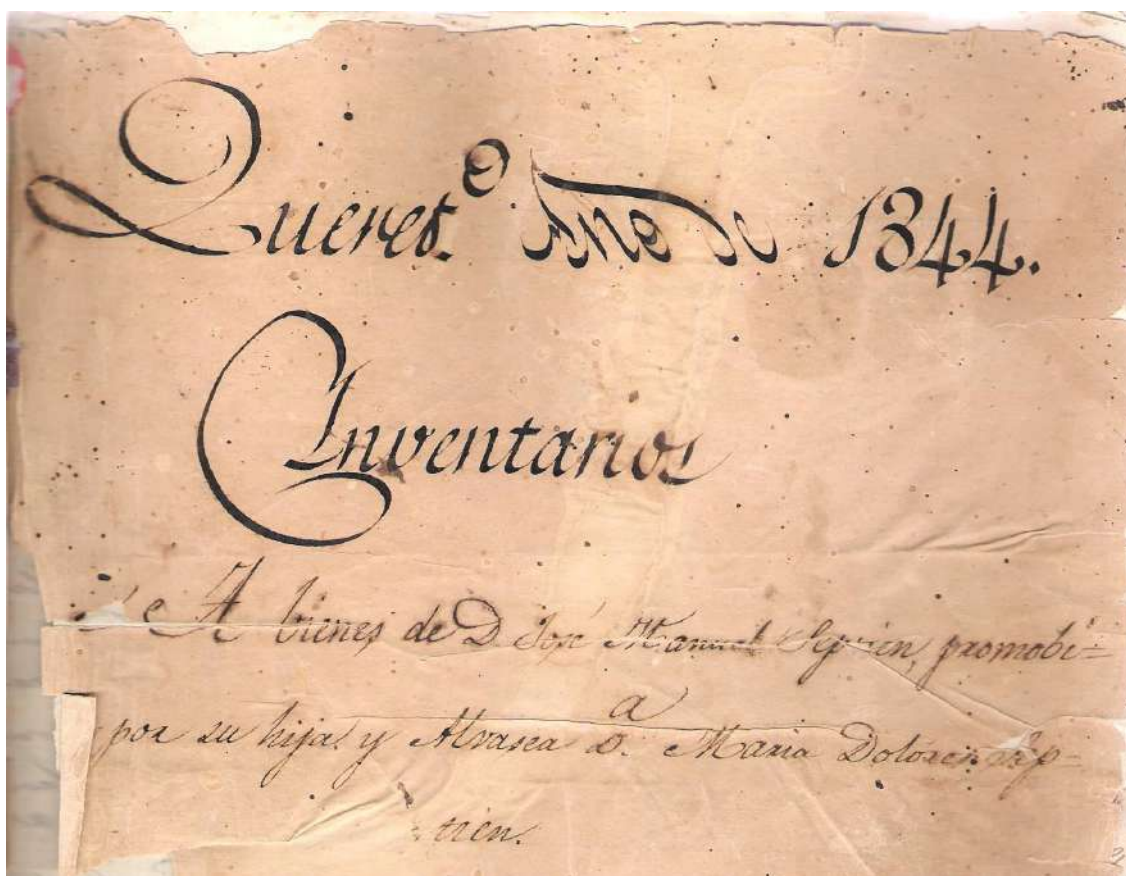 Queret.º Año de 1844.
Inventarios
A bienes de D José Manuel Septien, promobi=
por su hija y Alvasea D.ª Maria Dolores Sep-
tien.